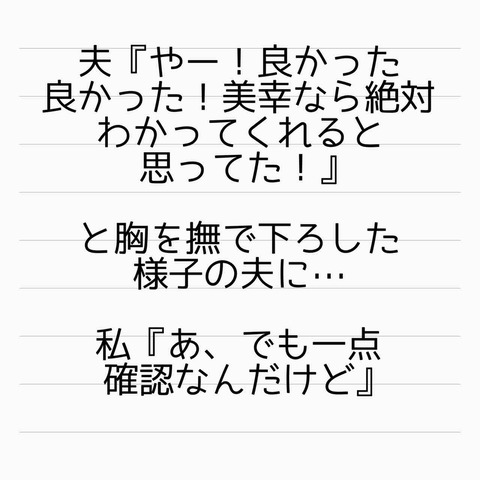 夫『やー！良かった
良かった！美幸なら絶対
わかってくれると
思ってた！』
と胸を撫で下ろした
様子の夫に…
私『あ、でも一点
確認なんだけど』